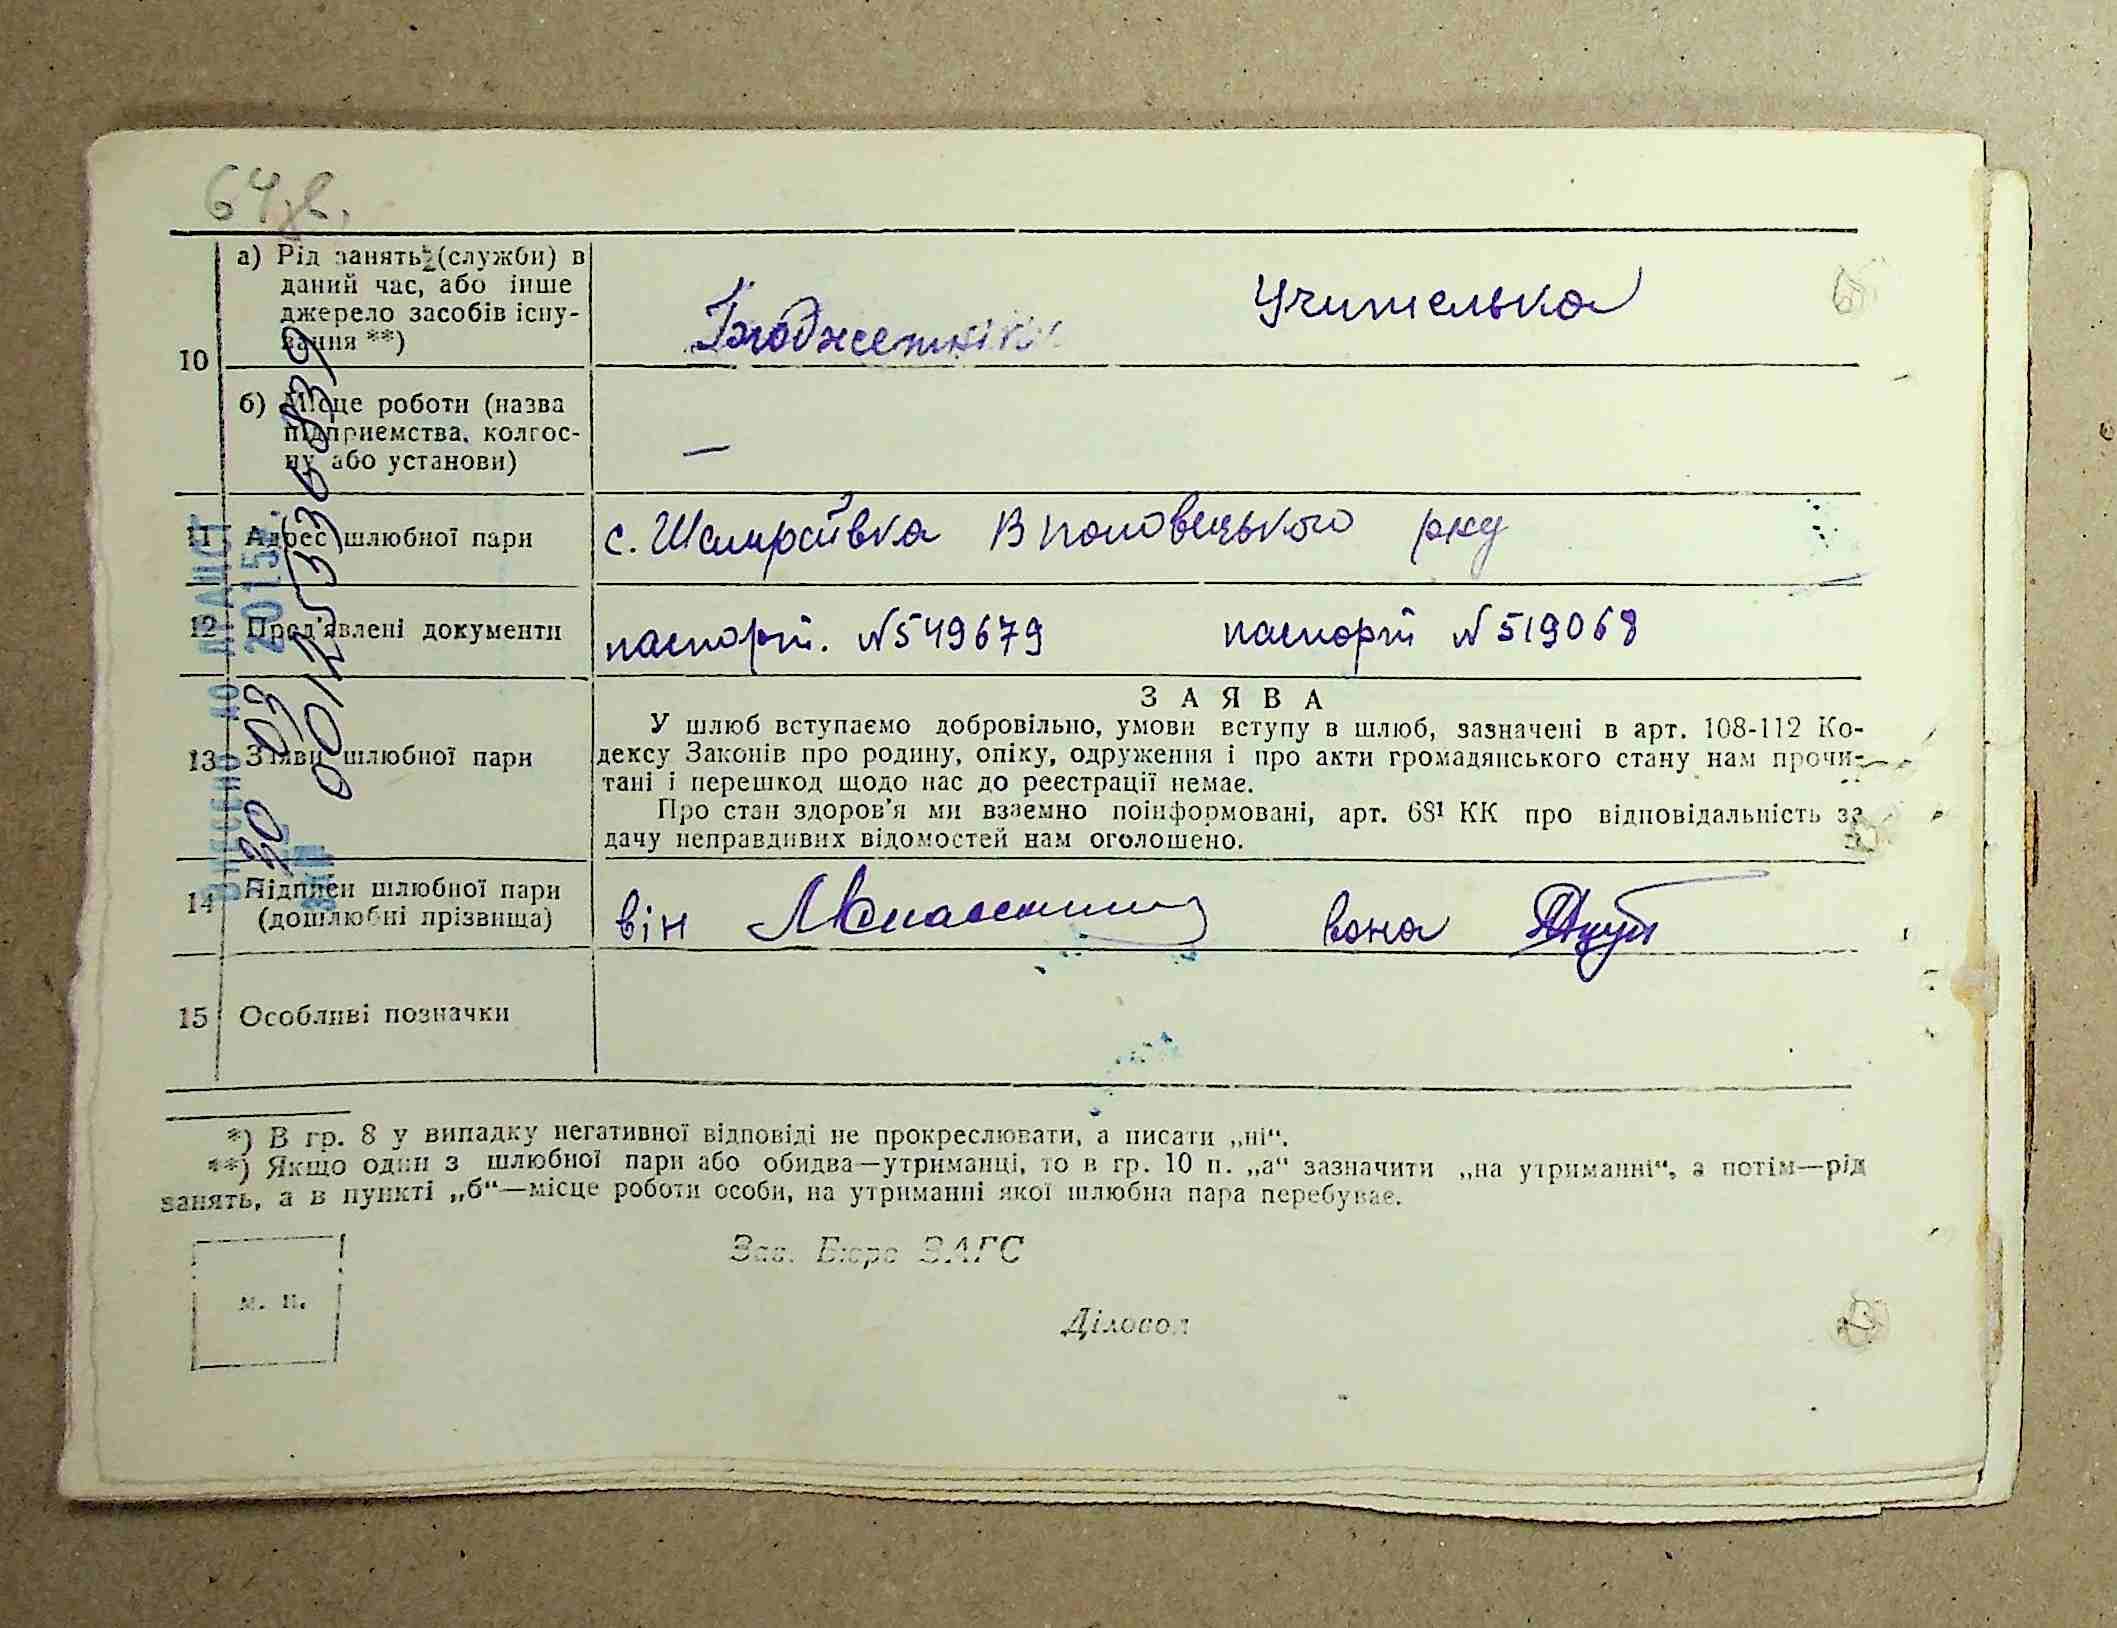 64
10
а) Рід занять (служби) в
даний час, або інше
джерело засобів існу-
вання **)
Учителька
б) Місце роботи (назва
підприємства, колгос-
пу або установи)
—
11 Адрес шлюбної пари
с. Шамраївка В половецького р-ну
12 Пред'явлені документи
паспорт. №549679 паспорт №519068
13 Заяви шлюбної пари
ЗАЯВА
У шлюб вступаємо добровільно, умови вступу в шлюб, зазначені в арт. 108-112 Ко-
дексу Законів про родину, опіку, одруження і про акти громадянського стану нам прочи-
тані і перешкод щодо нас до реестрації немає.
Про стан здоров'я ми взаємно поінформовані, арт. 68¹ КК про відповідальність за
дачу неправдивих відомостей нам оголошено.
14 Підписи шлюбної пари
(дошлюбні прізвища)
він вона
15 Особливі позначки
*) В гр. 8 у випадку негативної відповіді не прокреслювати, а писати „ні“.
**) Якщо один з шлюбної пари або обидва—утриманці, то в гр. 10 п. „а“ зазначити „на утриманні“, а потім—рід
занять, а в пункті „б“—місце роботи особи, на утриманні якої шлюбна пара перебуває.
Зав. Бюро ЗАГС
м. п.
Діловод
ВНЕСЕНО ДО ДРАЦСГ
30 03 2015
00125336839